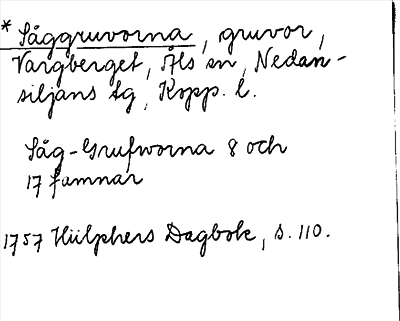 * Såggruvorna, gruvor,
Vargberget, Åls sn, Nedan-
siljans tg, Kopp. l.
Såg-Grufworna 8 och
17 famnar
1757 Hülphers Dagbok, s. 110.